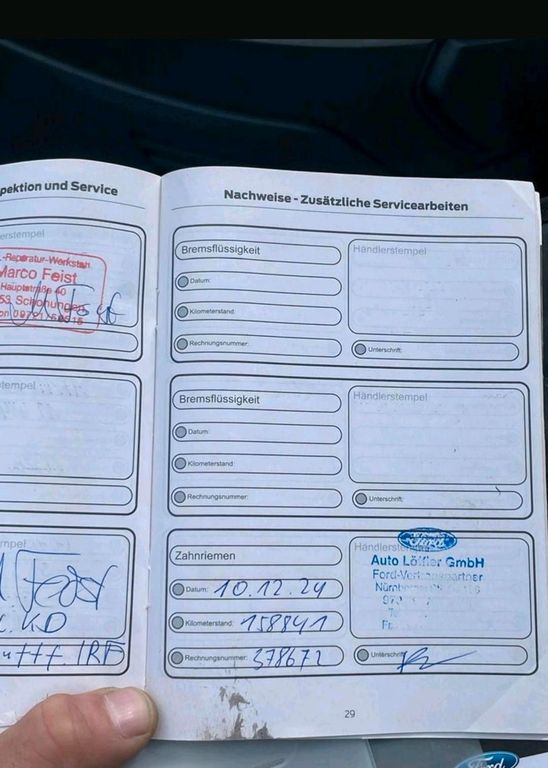 pektion und Service
erstempel
.-Reparatur-Werkstatt
Marco Feist
Hauptstraße 40
53 Schonungen
tempel
mpel
KD
Nachweise - Zusätzliche Servicearbeiten
Bremsflüssigkeit
Händlerstempel
Datum:
Kilometerstand:
Rechnungsnummer:
Unterschrift:
Bremsflüssigkeit
Händlerstempel
Datum:
Kilometerstand:
Rechnungsnummer:
Unterschrift:
Zahnriemen
Händlerstempel
Ford
Auto Löffler GmbH
Ford-Vertragspartner
Datum: 10.12.24
Kilometerstand: 158841
Rechnungsnummer: 378672
Unterschrift:
29
Ford